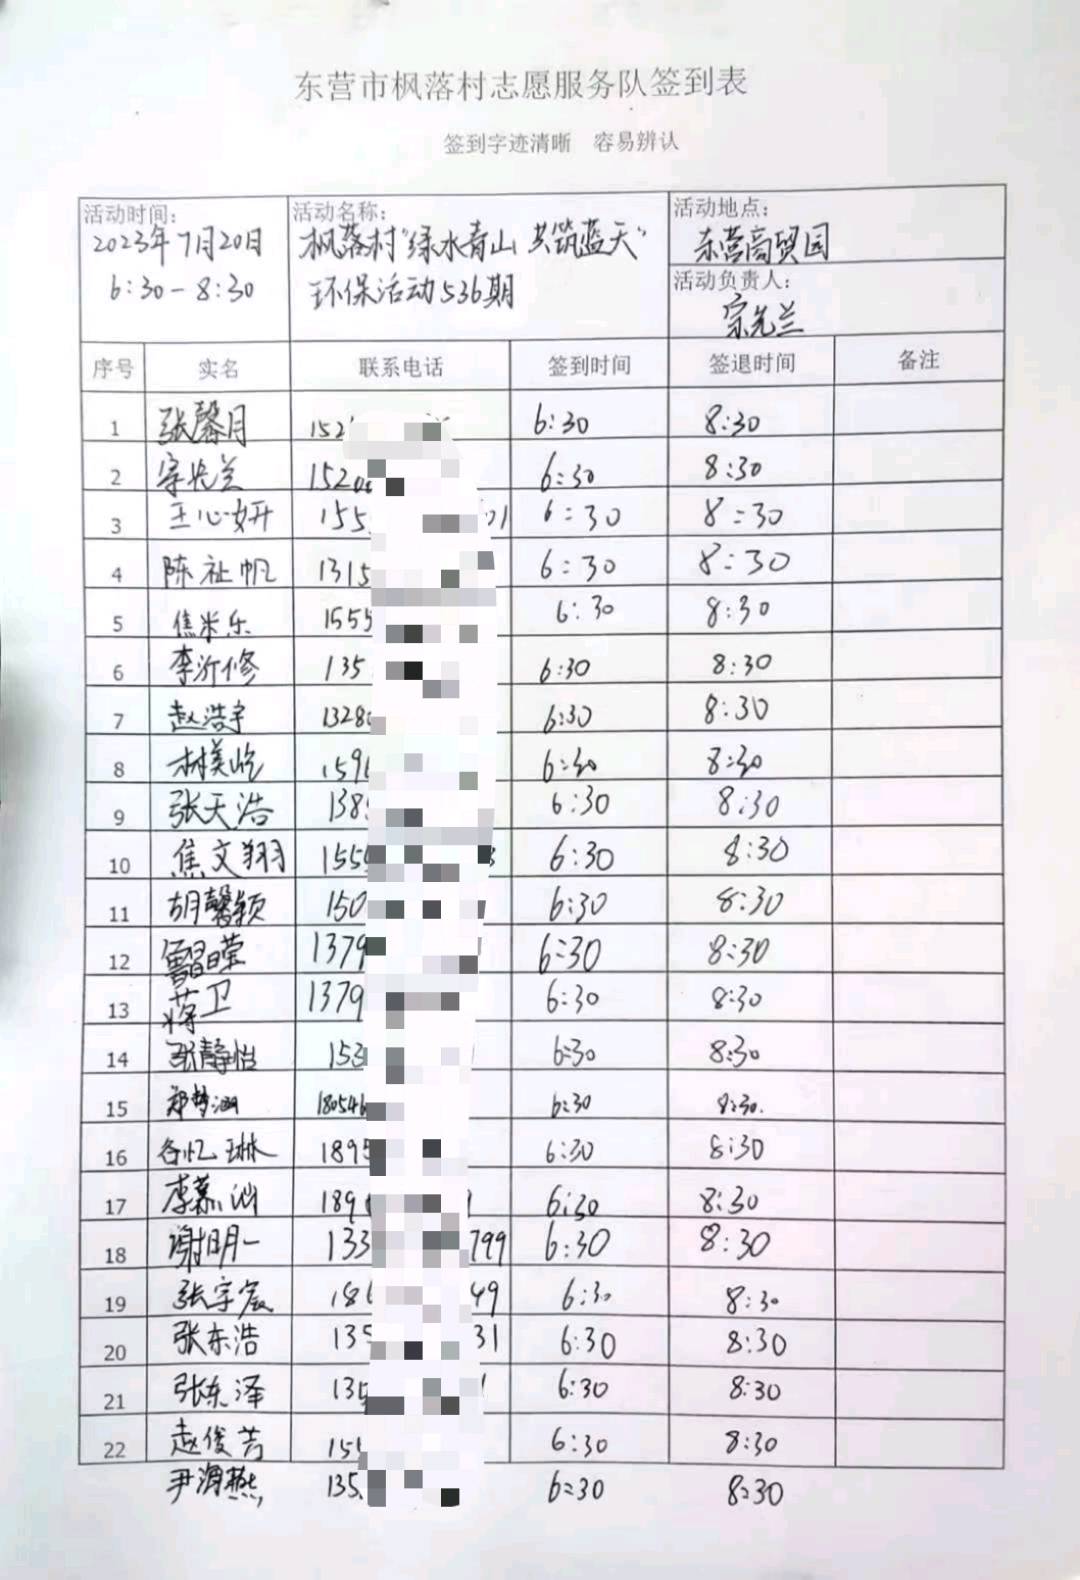 东营市枫落村志愿服务队签到表
签到字迹清晰 容易辨认
活动时间: 2023年7月20日 6:30-8:30
活动名称: 枫落村"绿水青山 共筑蓝天" 环保活动536期
活动地点: 东营商贸园
活动负责人: 宗先兰
序号 实名 联系电话 签到时间 签退时间 备注
1 张馨月 152 6:30 8:30
2 宗先兰 1520 6:30 8:30
3 王心妍 155 01 6:30 8:30
4 陈祉帆 1315 6:30 8:30
5 焦米乐 1555 6:30 8:30
6 李沂修 135 6:30 8:30
7 赵浩宇 1328 6:30 8:30
8 林美屹 159 6:30 8:30
9 张天浩 138 6:30 8:30
10 焦文翔 155 6:30 8:30
11 胡馨颖 150 6:30 8:30
12 1379 6:30 8:30
13 蒋卫 1379 6:30 8:30
14 张静怡 153 6:30 8:30
15 郑梦涵 18054 6:30 8:30.
16 忆琳 1895 6:30 8:30
17 李慕 189 6:30 8:30
18 谢明一 133 799 6:30 8:30
19 张宇宸 186 49 6:30 8:30
20 张东浩 135 31 6:30 8:30
21 张东泽 135 6:30 8:30
22 赵俊芳 15 6:30 8:30
尹海燕 135 6:30 8:30